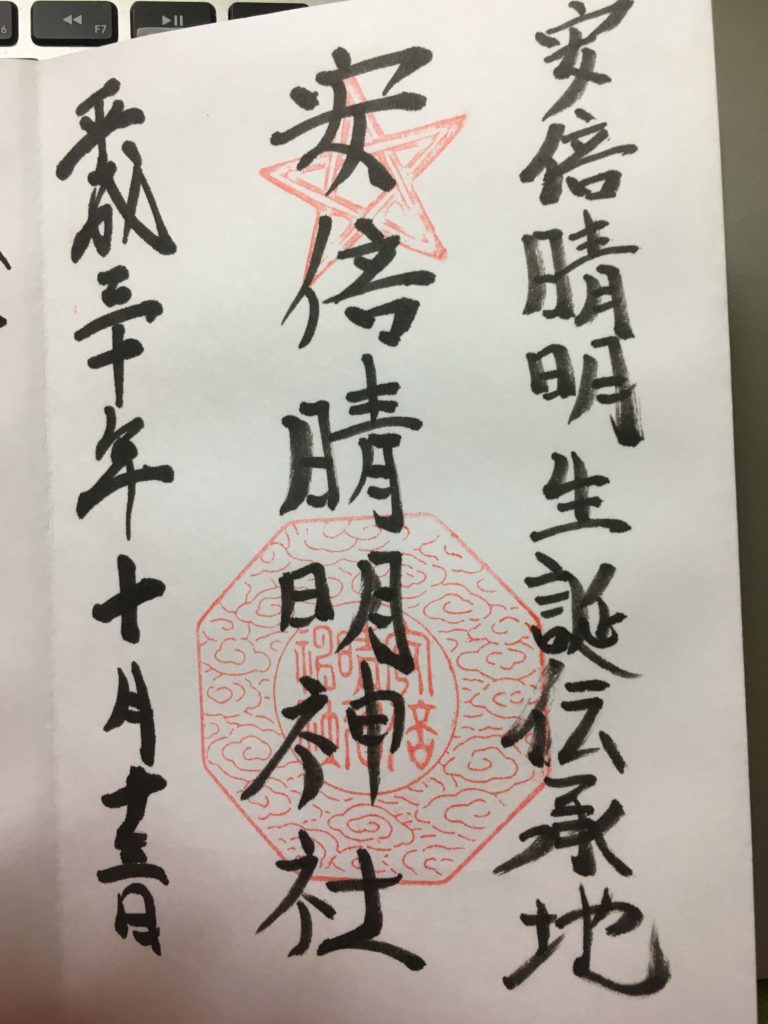 安倍晴明生誕伝承地
安倍晴明神社
平成三十年十月十三日
F7